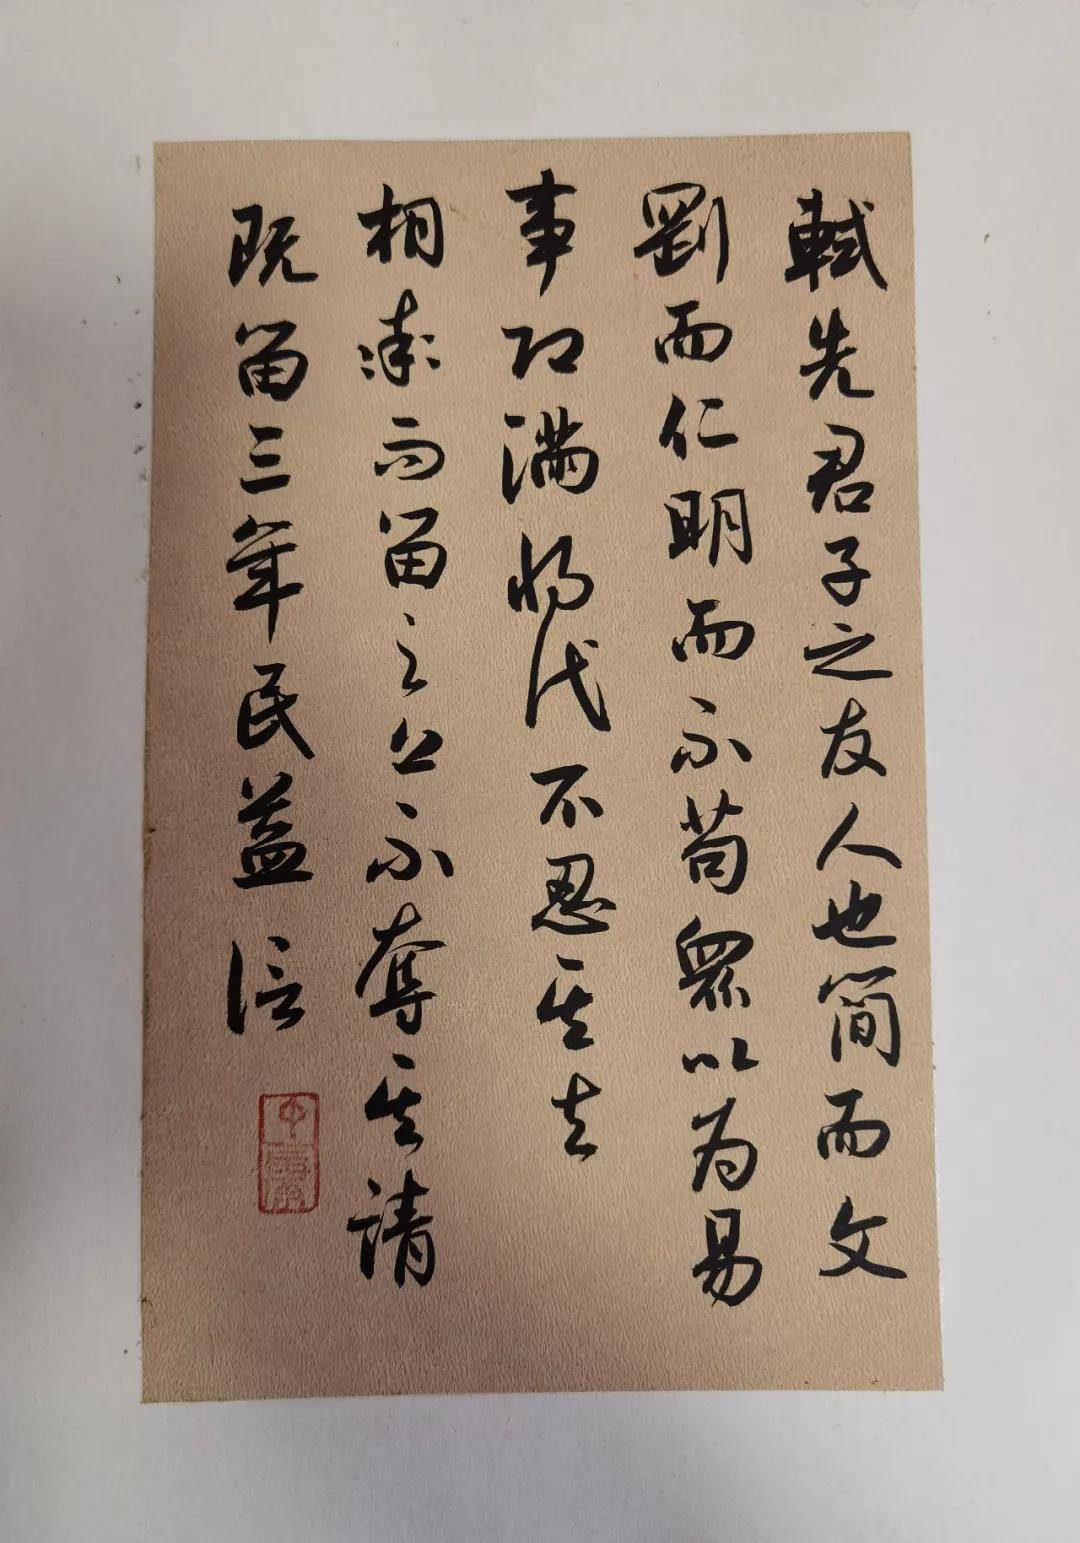 軾先君子之友人也簡而文
剛而仁明而不苟眾以为易
事既滿将代不忍其去
相率而留之上不奪其請
既留三年民益信